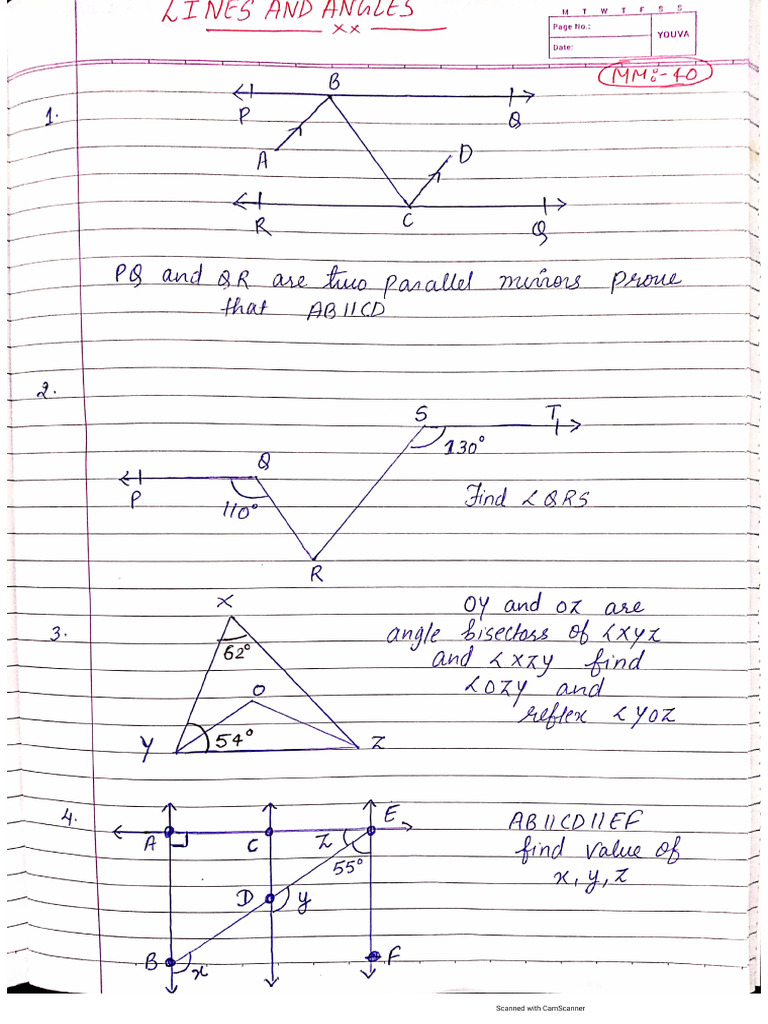 LINES AND ANGLES
xx
M T W T F S S
Page No.:
Date:
YOUVA
MM:-40
1.
B
P
Q
A
D
R
C
Q
PQ and QR are two parallel mirrors prove
that AB||CD
2.
S
T
130°
Q
P
110°
Find ∠QRS
R
3.
X
OY and OZ are
62°
angle bisectors of ∠XYZ
and ∠XZY find
O
∠OZY and
Y
54°
Z
reflex ∠YOZ
4.
E
A
C
Z
55°
AB||CD||EF
find value of
x, y, z
D
y
B
x
F
Scanned with CamScanner